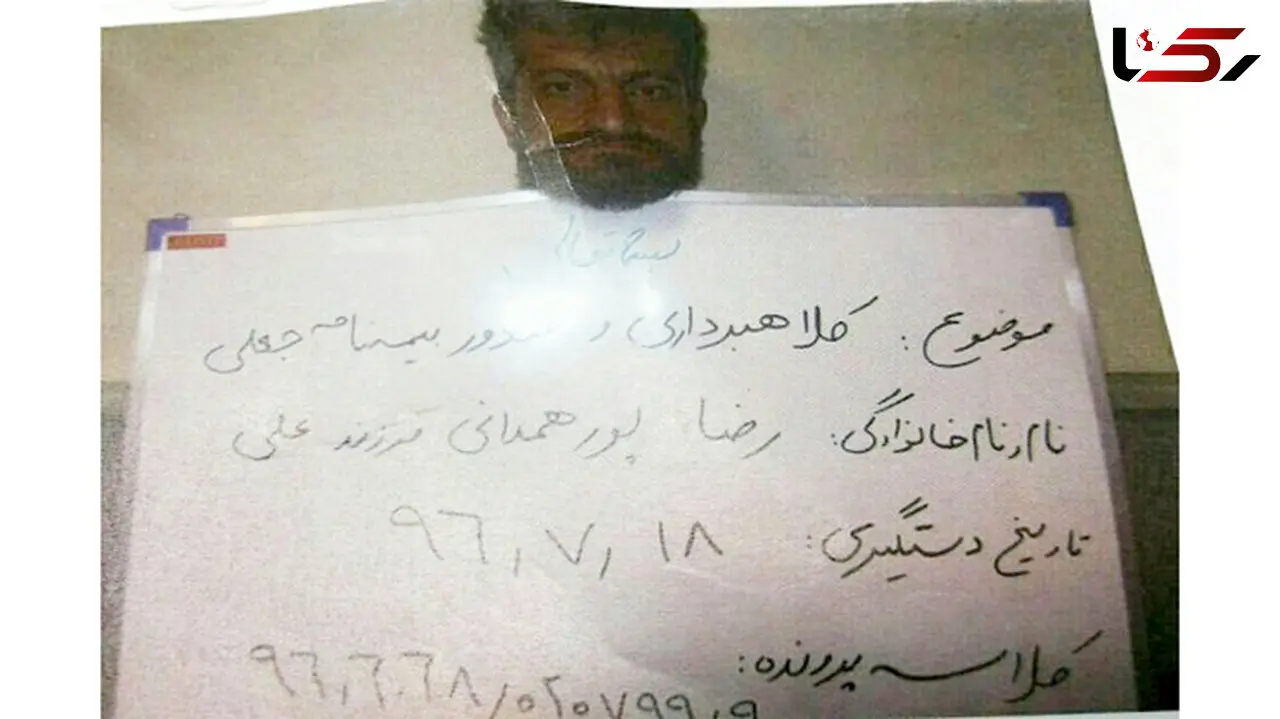 رکنا
بسمه تعالی
موضوع: کلاهبرداری و صدور بیمه‌نامه جعلی
نام و نام خانوادگی: رضا پور همدانی فرزند علی
تاریخ دستگیری: ۹۶,۷,۱۸
کلاسه پرونده: